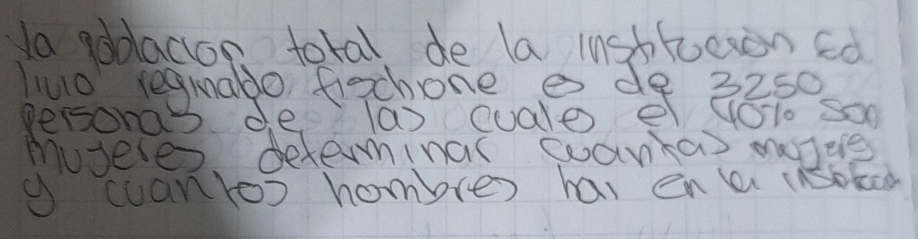 la poblacion total de la institucion Ed
livio reginaldo fischione es de 3250
personas de las cuales el 40% son
mugeres determinar cuantas mugeres
y cuantos hombres hai en la